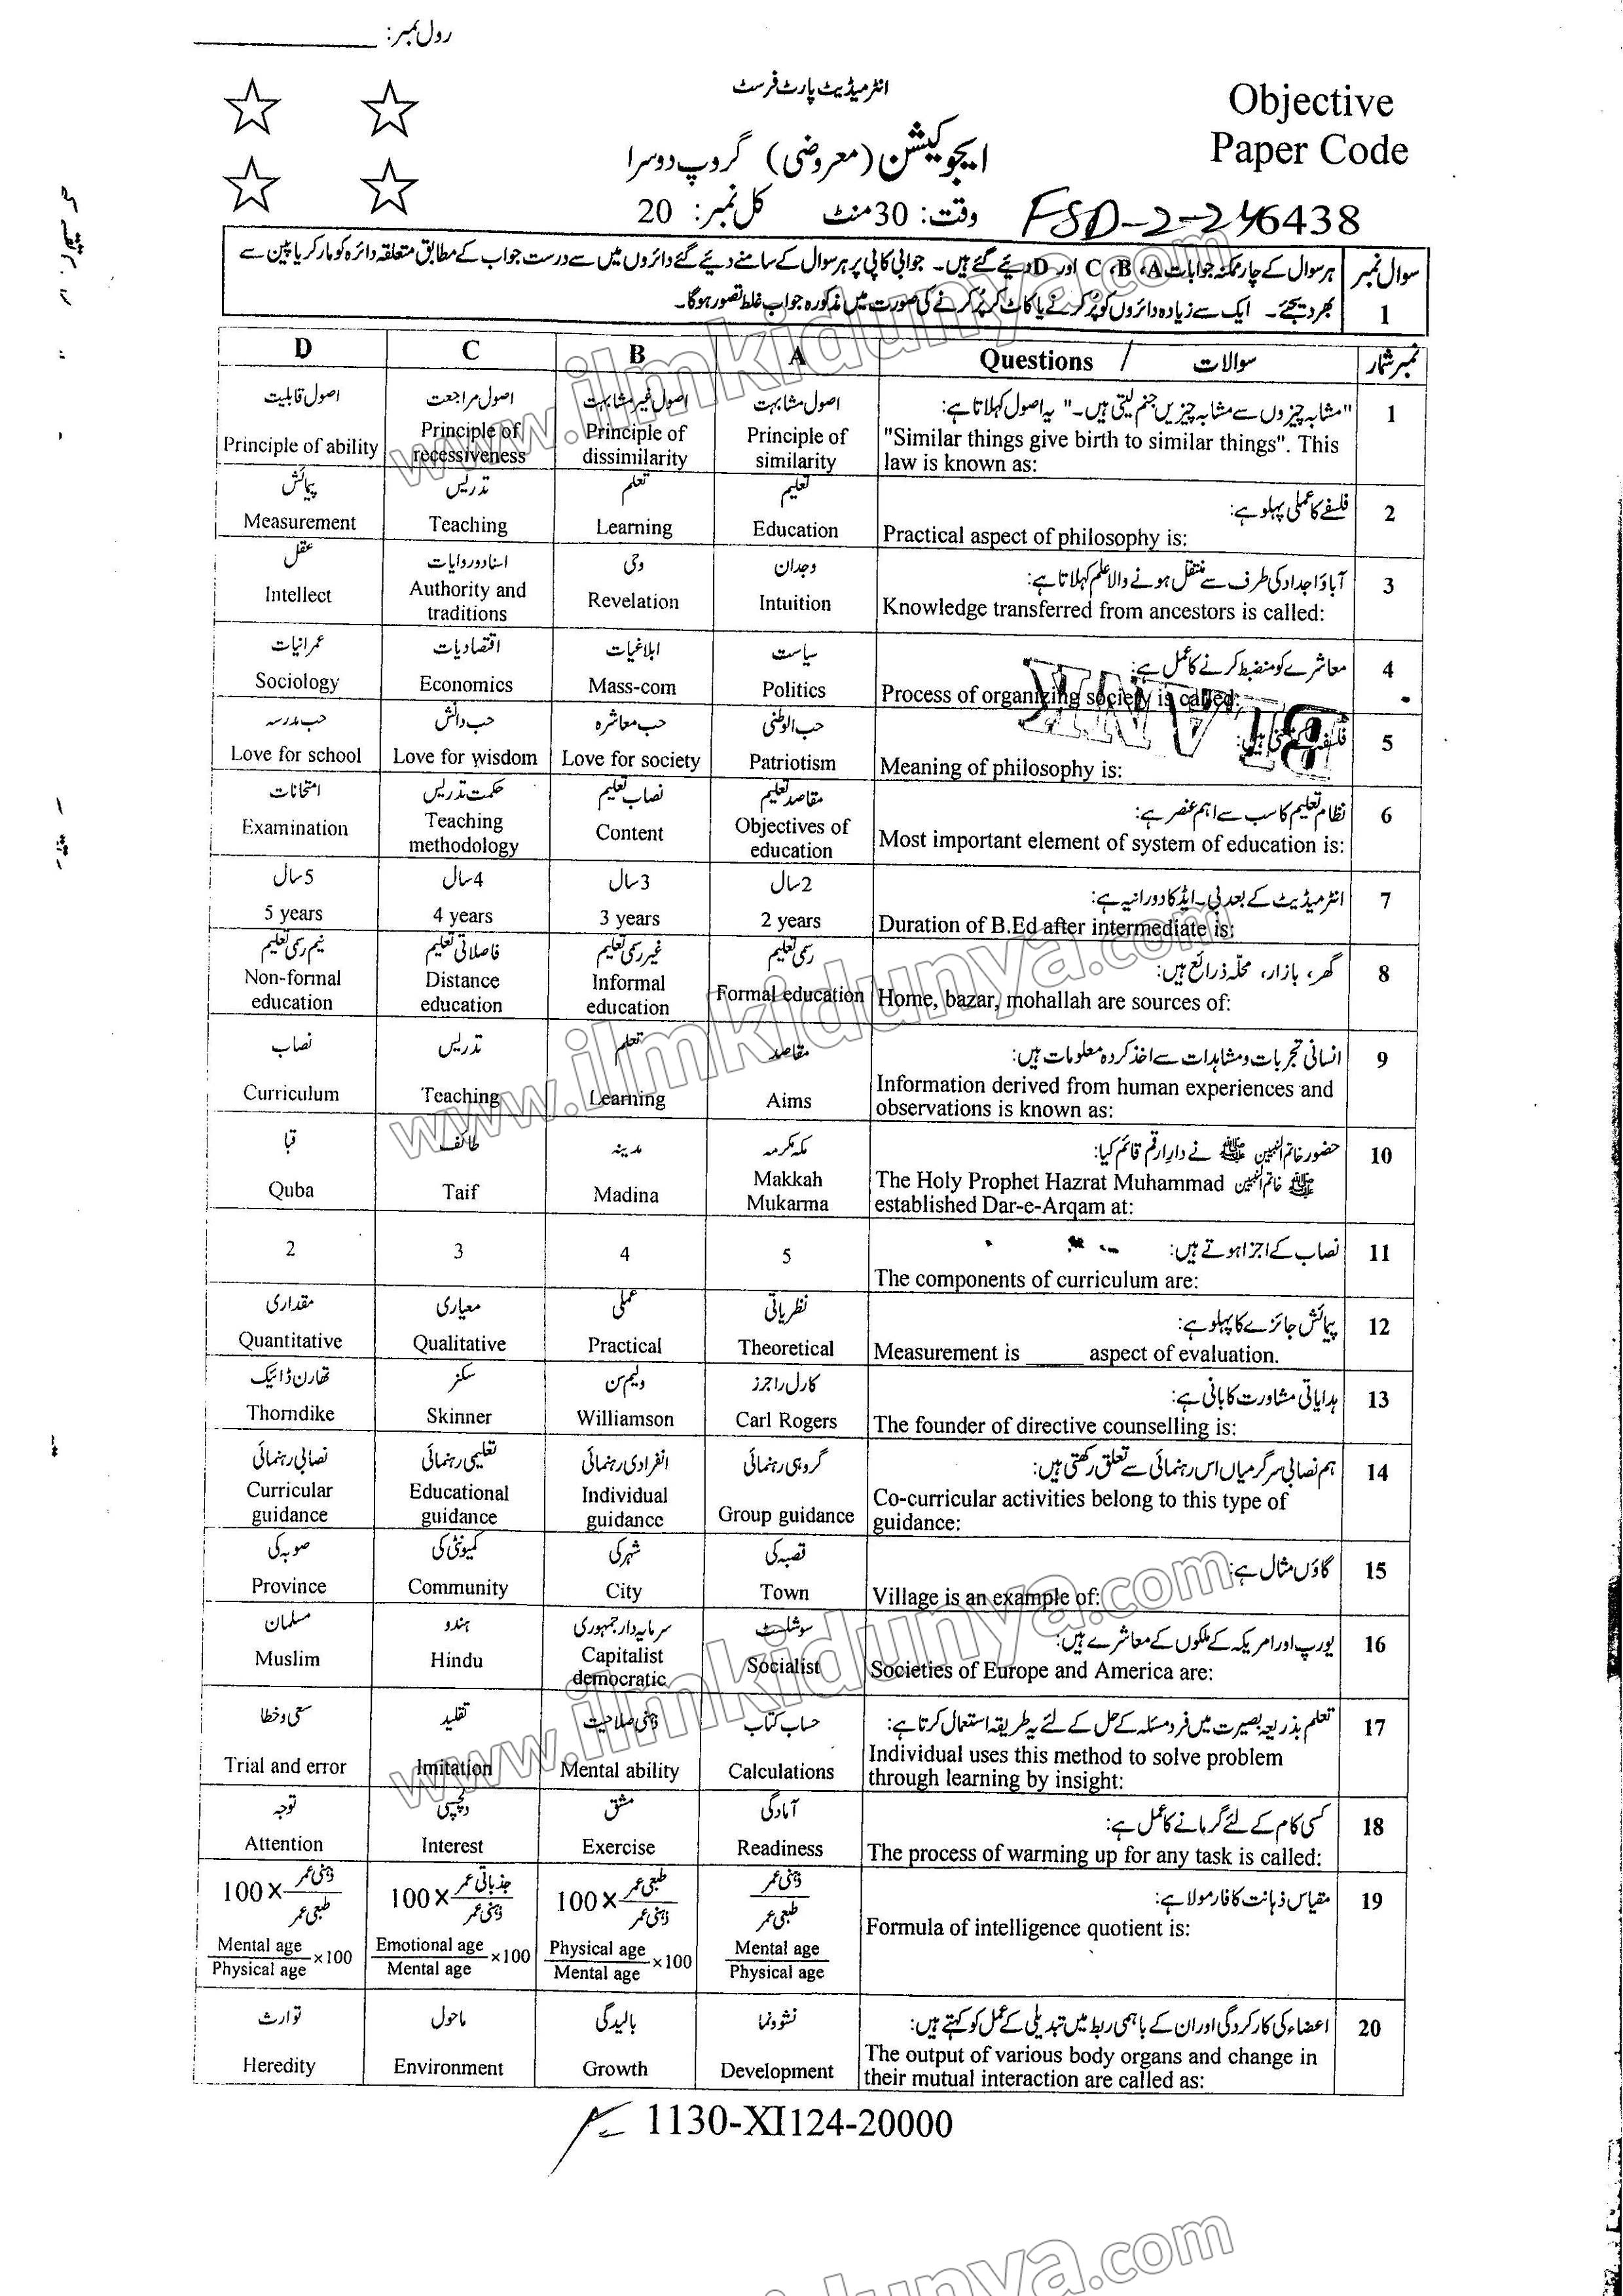 رول نمبر:
انٹرمیڈیٹ پارٹ فرسٹ
Objective
Paper Code
ایجوکیشن (معروضی) گروپ دوسرا
وقت: 30 منٹ کل نمبر: 20
FSD-2-24 6438
سوال نمبر 1
ہر سوال کے چار ممکنہ جوابات A، B، C اور D دیئے گئے ہیں۔ جوابی کاپی پر ہر سوال کے سامنے دیئے گئے دائروں میں سے درست جواب کے مطابق متعلقہ دائرہ کو مارکر یا پین سے
بھر دیجئے۔ ایک سے زیادہ دائروں کو پُر کرنے یا کاٹ کر پُر کرنے کی صورت میں مذکورہ جواب غلط تصور ہوگا۔
نمبر شمار سوالات / Questions A B C D
1 "مشابہ چیزوں سے مشابہ چیزیں جنم لیتی ہیں۔" یہ اصول کہلاتا ہے:
"Similar things give birth to similar things". This
law is known as:
اصول مشابہت
Principle of
similarity
اصول غیر مشابہت
Principle of
dissimilarity
اصول مراجعت
Principle of
recessiveness
اصول قابلیت
Principle of ability
2 فلسفے کا عملی پہلو ہے:
Practical aspect of philosophy is:
تعلیم
Education
تعلم
Learning
تدریس
Teaching
پیمائش
Measurement
3 آباؤ اجداد کی طرف سے منتقل ہونے والا علم کہلاتا ہے:
Knowledge transferred from ancestors is called:
وجدان
Intuition
وحی
Revelation
اسناد و روایات
Authority and
traditions
عقل
Intellect
4 معاشرے کو منضبط کرنے کا عمل ہے:
Process of organizing society is called:
سیاست
Politics
ابلاغیات
Mass-com
اقتصادیات
Economics
عمرانیات
Sociology
BLANK
5 Meaning of philosophy is:
حب الوطنی
Patriotism
حب معاشرہ
Love for society
حب دانش
Love for wisdom
حب مدرسہ
Love for school
6 نظام تعلیم کا سب سے اہم عنصر ہے:
Most important element of system of education is:
مقاصد تعلیم
Objectives of
education
نصاب تعلیم
Content
حکمت تدریس
Teaching
methodology
امتحانات
Examination
7 انٹرمیڈیٹ کے بعد بی۔ایڈ کا دورانیہ ہے:
Duration of B.Ed after intermediate is:
2 سال
2 years
3 سال
3 years
4 سال
4 years
5 سال
5 years
8 گھر، بازار، محلّہ ذرائع ہیں:
Home, bazar, mohallah are sources of:
رسمی تعلیم
Formal education
غیر رسمی تعلیم
Informal
education
فاصلاتی تعلیم
Distance
education
نیم رسمی تعلیم
Non-formal
education
9 انسانی تجربات و مشاہدات سے اخذ کردہ معلومات ہیں:
Information derived from human experiences and
observations is known as:
مقاصد
Aims
تعلم
Learning
تدریس
Teaching
نصاب
Curriculum
10 حضور خاتم النبیین ﷺ نے دار ارقم قائم کیا:
The Holy Prophet Hazrat Muhammad خاتم النبیین ﷺ
established Dar-e-Arqam at:
مکہ مکرمہ
Makkah
Mukarma
مدینہ
Madina
طائف
Taif
قبا
Quba
11 نصاب کے اجزا ہوتے ہیں:
The components of curriculum are:
5
4
3
2
12 پیمائش جائزے کا پہلو ہے:
Measurement is _____ aspect of evaluation.
نظریاتی
Theoretical
عملی
Practical
معیاری
Qualitative
مقداری
Quantitative
13 ہدایاتی مشاورت کا بانی ہے:
The founder of directive counselling is:
کارل راجرز
Carl Rogers
ولیم سن
Williamson
سکنر
Skinner
تھارن ڈائیک
Thorndike
14 ہم نصابی سرگرمیاں اس رہنمائی سے تعلق رکھتی ہیں:
Co-curricular activities belong to this type of
guidance:
گروہی رہنمائی
Group guidance
انفرادی رہنمائی
Individual
guidance
تعلیمی رہنمائی
Educational
guidance
نصابی رہنمائی
Curricular
guidance
15 گاؤں مثال ہے:
Village is an example of:
قصبہ کی
Town
شہر کی
City
کمیونٹی کی
Community
صوبہ کی
Province
16 یورپ اور امریکہ کے ملکوں کے معاشرے ہیں:
Societies of Europe and America are:
سوشلسٹ
Socialist
سرمایہ دار جمہوری
Capitalist
democratic
ہندو
Hindu
مسلمان
Muslim
17 تعلم بذریعہ بصیرت میں فرد مسئلہ کے حل کے لئے یہ طریقہ استعمال کرتا ہے:
Individual uses this method to solve problem
through learning by insight:
حساب کتاب
Calculations
ذہنی صلاحیت
Mental ability
تقلید
Imitation
سعی و خطا
Trial and error
18 کسی کام کے لئے گرمانے کا عمل ہے:
The process of warming up for any task is called:
آمادگی
Readiness
مشق
Exercise
دلچسپی
Interest
توجہ
Attention
19 مقیاس ذہانت کا فارمولا ہے:
Formula of intelligence quotient is:
ذہنی عمر
طبعی عمر
Mental age
Physical age
100× طبعی عمر
ذہنی عمر
Physical age ×100
Mental age
100× جذباتی عمر
ذہنی عمر
Emotional age ×100
Mental age
100× ذہنی عمر
طبعی عمر
Mental age ×100
Physical age
20 اعضاء کی کارکردگی اور ان کے باہمی ربط میں تبدیلی کے عمل کو کہتے ہیں:
The output of various body organs and change in
their mutual interaction are called as:
نشوونما
Development
بالیدگی
Growth
ماحول
Environment
توارث
Heredity
1130-XI124-20000
www.ilmkidunya.com
www.ilmkidunya.com
www.ilmkidunya.com